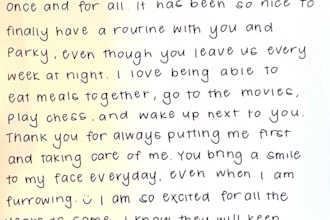 once and for all. It has been so nice to
finally have a routine with you and
Parky, even though you leave us every
week at night. I love being able to
eat meals together, go to the movies,
play chess, and wake up next to you.
Thank you for always putting me first
and taking care of me. You bring a smile
to my face everyday, even when I am
furrowing. I am so excited for all the
years to come. I know they will keep